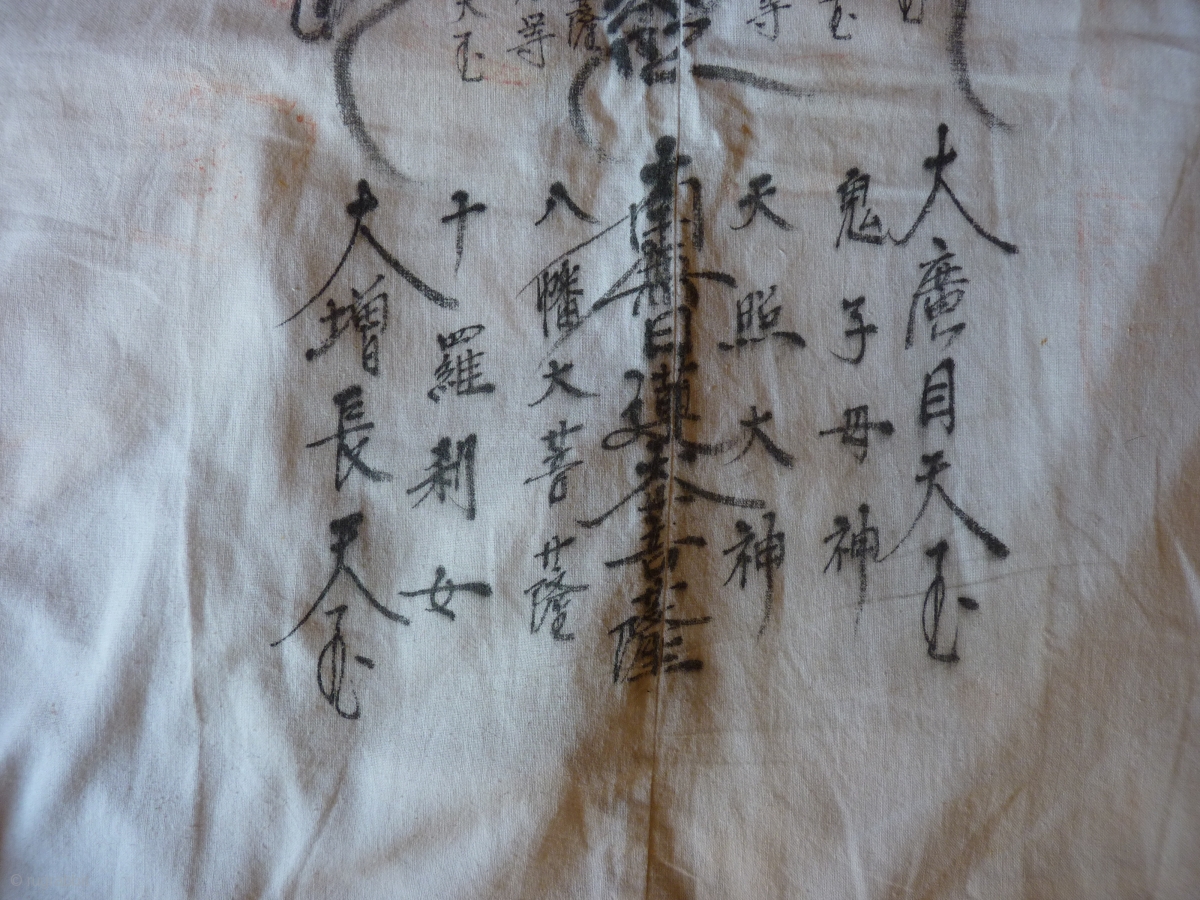 大廣目天玉
鬼子母神
天照大神
南無日蓮大菩薩
八幡大菩薩
十羅刹女
大増長天玉